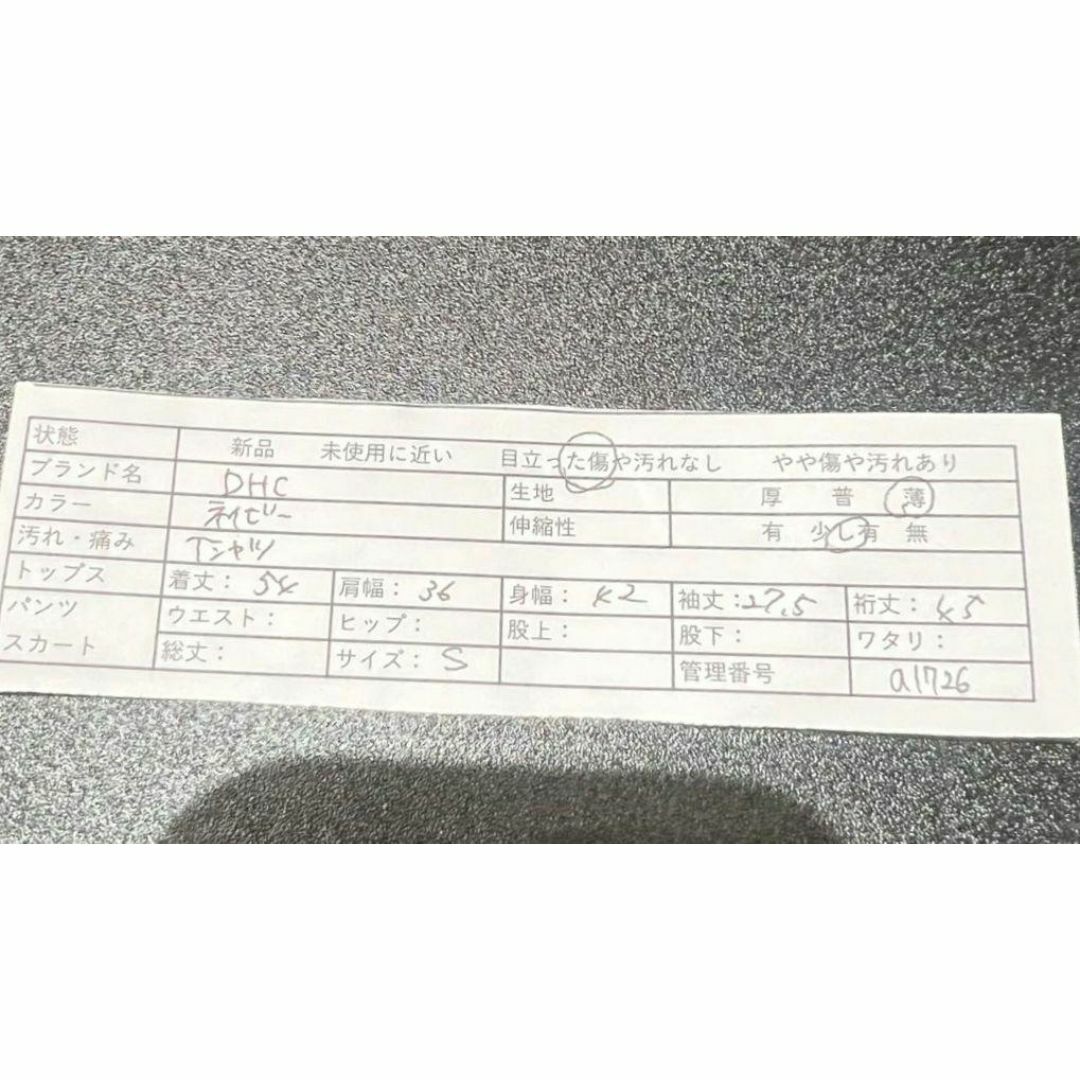 状態 新品 未使用に近い 目立った傷や汚れなし やや傷や汚れあり
ブランド名 DHC 生地 厚 普 薄
カラー ネイビー 伸縮性 有 少し有 無
汚れ・痛み Tシャツ
トップス 着丈: 54 肩幅: 36 身幅: 42 袖丈:27.5 裄丈: 45
パンツ ウエスト: ヒップ: 股上: 股下: ワタリ:
スカート 総丈: サイズ: S 管理番号 a1726